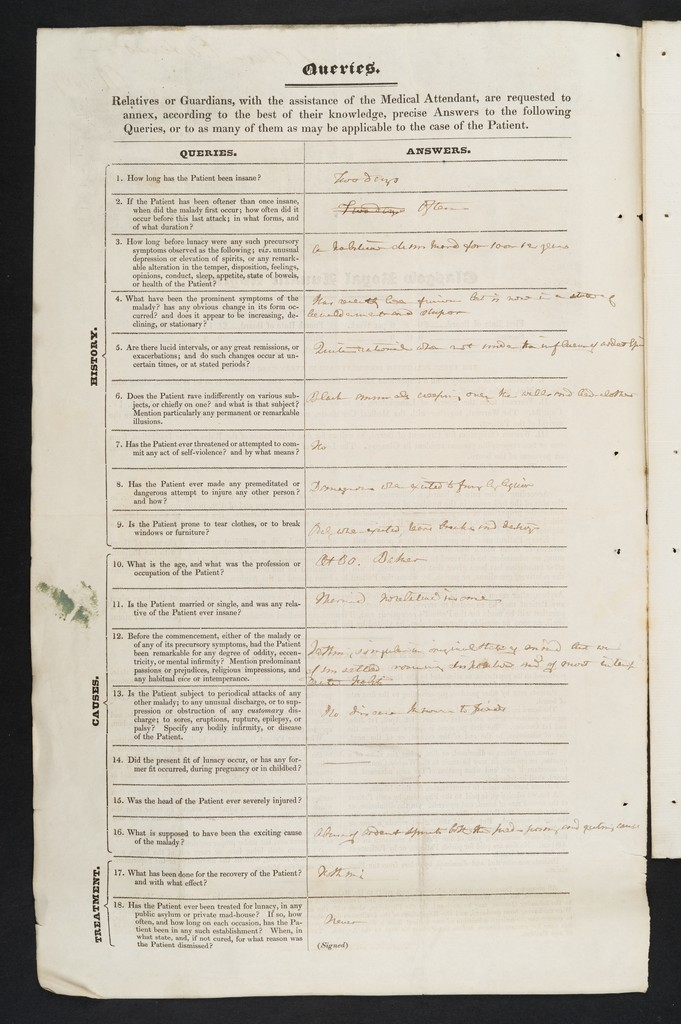 Queries.
Relatives or Guardians, with the assistance of the Medical Attendant, are requested to
annex, according to the best of their knowledge, precise Answers to the following
Queries, or to as many of them as may be applicable to the case of the Patient.
QUERIES.
ANSWERS.
HISTORY.
1. How long has the Patient been insane?
Two days
2. If the Patient has been oftener than once insane,
when did the malady first occur; how often did it
occur before this last attack; in what forms, and
of what duration?
Two days Often
3. How long before lunacy were any such precursory
symptoms observed as the following; viz. unusual
depression or elevation of spirits, or any remark-
able alteration in the temper, disposition, feelings,
opinions, conduct, sleep, appetite, state of bowels,
or health of the Patient?
for 10 or 12 years
4. What have been the prominent symptoms of the
malady? has any obvious change in its form oc-
curred? and does it appear to be increasing, de-
clining, or stationary?
Has been but is now in a state of
and stupor
5. Are there lucid intervals, or any great remissions, or
exacerbations; and do such changes occur at un-
certain times, or at stated periods?
Quite rational when not under the influence of ardent
6. Does the Patient rave indifferently on various sub-
jects, or chiefly on one? and what is that subject?
Mention particularly any permanent or remarkable
illusions.
Black animals creeping over the walls and bed clothes
7. Has the Patient ever threatened or attempted to com-
mit any act of self-violence? and by what means?
No
8. Has the Patient ever made any premeditated or
dangerous attempt to injure any other person?
and how?
Dangerous when excited to fury by liquor
9. Is the Patient prone to tear clothes, or to break
windows or furniture?
when excited, tears breaks and destroys
CAUSES.
10. What is the age, and what was the profession or
occupation of the Patient?
Baker
11. Is the Patient married or single, and was any rela-
tive of the Patient ever insane?
Married no relative insane
12. Before the commencement, either of the malady or
of any of its precursory symptoms, had the Patient
been remarkable for any degree of oddity, eccen-
tricity, or mental infirmity? Mention predominant
passions or prejudices, religious impressions, and
any habitual vice or intemperance.
Nothing original state of mind but was
of unsettled roaming disposition and of most intemp
erate habits
13. Is the Patient subject to periodical attacks of any
other malady; to any unusual discharge, or to sup-
pression or obstruction of any customary dis-
charge; to sores, eruptions, rupture, epilepsy, or
palsy? Specify any bodily infirmity, or disease
of the Patient.
No disease known to friends
14. Did the present fit of lunacy occur, or has any for-
mer fit occurred, during pregnancy or in childbed?
15. Was the head of the Patient ever severely injured?
16. What is supposed to have been the exciting cause
of the malady?
Abuse of ardent spirits both the predisposing and exciting cause
TREATMENT.
17. What has been done for the recovery of the Patient?
and with what effect?
Nothing
18. Has the Patient ever been treated for lunacy, in any
public asylum or private mad-house? If so, how
often, and how long on each occasion, has the Pa-
tient been in any such establishment? When, in
what state, and, if not cured, for what reason was
the Patient dismissed?
Never
(Signed)